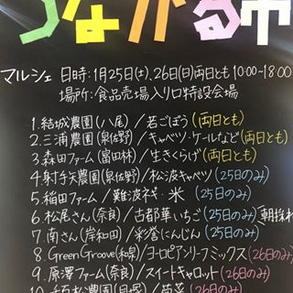 つながる市
マルシェ 日時:1月25日(土)、26日(日)両日とも10:00-18:00
場所:食品売場入り口特設会場
1.結城農園(八尾)/若ごぼう(両日とも)
2.三浦農園(泉佐野)/キャベツ・ケールなど(両日とも)
3.森田ファーム(富田林)/生きくらげ(両日とも)
4.射手矢農園(泉佐野)/松波キャベツ(25日のみ)
5.稲田ファーム/難波ネギ・米(25日のみ)
6.松尾さん(奈良)/古都華いちご(25日のみ)朝採れ
7.南さん(岸和田)/彩誉にんじん(25日のみ)
8.Green Groove(和泉)/ヨーロピアンリーフミックス(26日のみ)
9.原澤ファーム(奈良)/スイートキャロット(26日のみ)